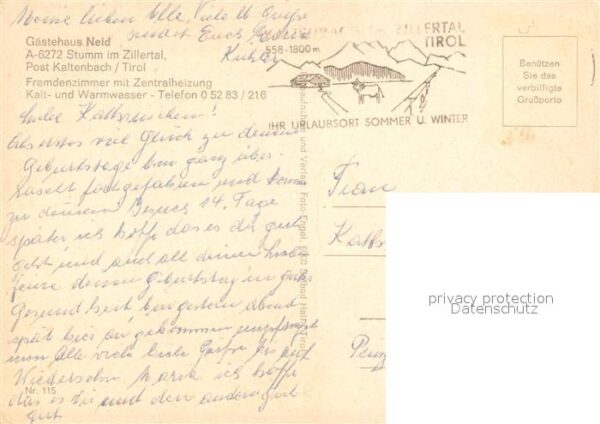 Meine lieben Alle. Viele lb Grüße
sendet Euch
Gästehaus Neid
A-6272 Stumm im Zillertal,
Post Kaltenbach / Tirol
Fremdenzimmer mit Zentralheizung
Kalt- und Warmwasser - Telefon 0 52 83 / 216
IM ZILLERTAL
TIROL
558-1800m
IHR URLAUBSORT SOMMER U. WINTER
Benützen
Sie das
verbilligte
Grußporto
Liebe
Als erstes viel Glück zu deinem
Geburtstage bin ganz über-
rascht fortgefahren und komme
zu deinem Besuch 14. Tage
später ich hoffe das es dir gut
geht und auch all deinen
feire deinen Geburtstag in guter
Gesundheit bin gestern abend
spät hier an gekommen
von Alle viele liebe Grüße bis auf
Wiedersehn ich hoffe
das es dir und den andern gut
gut
Nr. 115
und Verlag Foto
Frau
privacy protection
Datenschutz